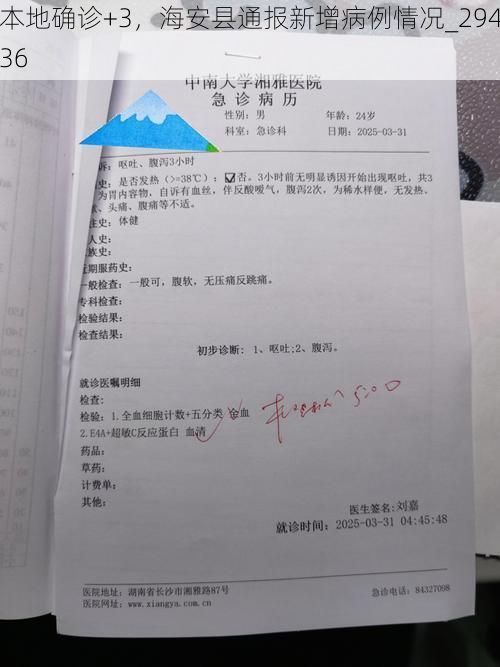 本地确诊+3，海安县通报新增病例情况_294
36
中南大学湘雅医院
急诊病历
性别：男 年龄：24岁
科室：急诊科 日期：2025-03-31
诉：呕吐、腹泻3小时
史：是否发热（>=38℃）：☑否。3小时前无明显诱因开始出现呕吐，共3
为胃内容物，自诉有血丝，伴反酸嗳气，腹泻2次，为稀水样便，无发热、
、头痛、腹痛等不适。
往史：体健
人史：
族史：
近期服药史：
一般检查：一般可，腹软，无压痛反跳痛。
专科检查：
检验结果：
检查结果：
初步诊断： 1、呕吐;2、腹泻。
就诊医嘱明细
检查：
检验：1.全血细胞计数+五分类 全血
2.E4A+超敏C反应蛋白 血清
5:00
药品：
草药：
计费单：
其他：
医生签名:刘嘉
就诊时间：2025-03-31 04:45:48
医院地址：湖南省长沙市湘雅路87号 急诊电话：84327098
医院网址：www.xiangya.com.cn